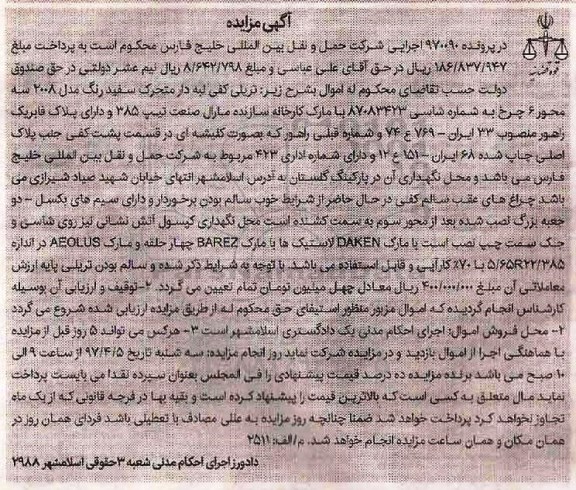 آگهی مزایده
در پرونده ۹۷۰۰۹۰ اجرایی شرکت حمل و نقل بین المللی خلیج فارس محکوم است به پرداخت مبلغ
۱۸۶/۸۳۷/۹۴۷ ریال در حق آقای علی عباسی و مبلغ ۸/۶۴۲/۷۹۸ ریال نیم عشر دولتی در حق صندوق
دولت حسب تقاضای محکوم له اموال بشرح زیر: تریلی کفی لبه دار متحرک سفید رنگ مدل ۲۰۰۸ سه
محور ۶ چرخ به شماره شاسی ۸۷۰۸۳۴۲۳ با مارک کارخانه سازنده مارال صنعت تیپ ۳۸۵ و دارای پلاک فابریک
راهور منصوب ۳۳ ایران – ۷۶۹ ع ۷۴ و شماره قبلی راهور که بصورت کلیشه ای در قسمت پشت کفی جنب پلاک
اصلی چاپ شده ۶۸ ایران – ۱۵۱ ع ۱۲ و دارای شماره اداری ۴۲۳ مربوط به شرکت حمل و نقل بین المللی خلیج
فارس می باشد و محل نگهداری آن در پارکینگ گلستان به آدرس اسلامشهر انتهای خیابان شهید صیاد شیرازی می
باشد چراغ های عقب سالم کفی در حال حاضر از شرایط خوب سالم بودن برخوردار و دارای سیم های بکسل – دو
جعبه بزرگ نصب شده بعد از محور سوم به سمت کشنده است محل نگهداری کپسول آتش نشانی نیز روی شاسی و
جنک سمت چپ نصب است با مارک DAKEN لاستیک ها با مارک BAREZ چهار حلقه و مارک AEOLUS در اندازه
۵/۶۵R۲۲/۳۸۵ با ۷۰٪ کارآیی و قابل استفاده می باشد. با توجه به شرایط ذکر شده و سالم بودن تریلی پایه ارزش
معاملاتی آن مبلغ ۴۰۰/۰۰۰/۰۰۰ ریال معادل چهل میلیون تومان تمام تعیین می گردد. ۲–توقیف و ارزیابی آن بوسیله
کارشناس انجام گردیده که اموال مزبور منظور استیفای حق محکوم له از طریق مزایده ارزیابی شده شروع می گردد
۲– محل فروش اموال: اجرای احکام مدنی یک دادگستری اسلامشهر است ۳– هرکس می تواند ۵ روز قبل از مزایده
با هماهنگی اجرا از اموال بازدید و در مزایده شرکت نماید روز انجام مزایده: سه شنبه تاریخ ۹۷/۴/۵ از ساعت ۹ الی
۱۰ صبح می باشد برنده مزایده ده درصد قیمت پیشنهادی را فی المجلس بعنوان سپرده نقدا می بایست پرداخت
نماید مال متعلق به کسی است که بالاترین قیمت را پیشنهاد کرده است و بقیه بها در فرجه قانونی که از یک ماه
تجاوز نخواهد کرد پرداخت خواهد شد ضمنا چنانچه روز مزایده به عللی مصادف با تعطیلی باشد فردای همان روز در
همان مکان و همان ساعت مزایده انجام خواهد شد. م/الف: ۲۵۱۱
دادورز اجرای احکام مدنی شعبه ۳ حقوقی اسلامشهر ۲۹۸۸
قوه قضاییه